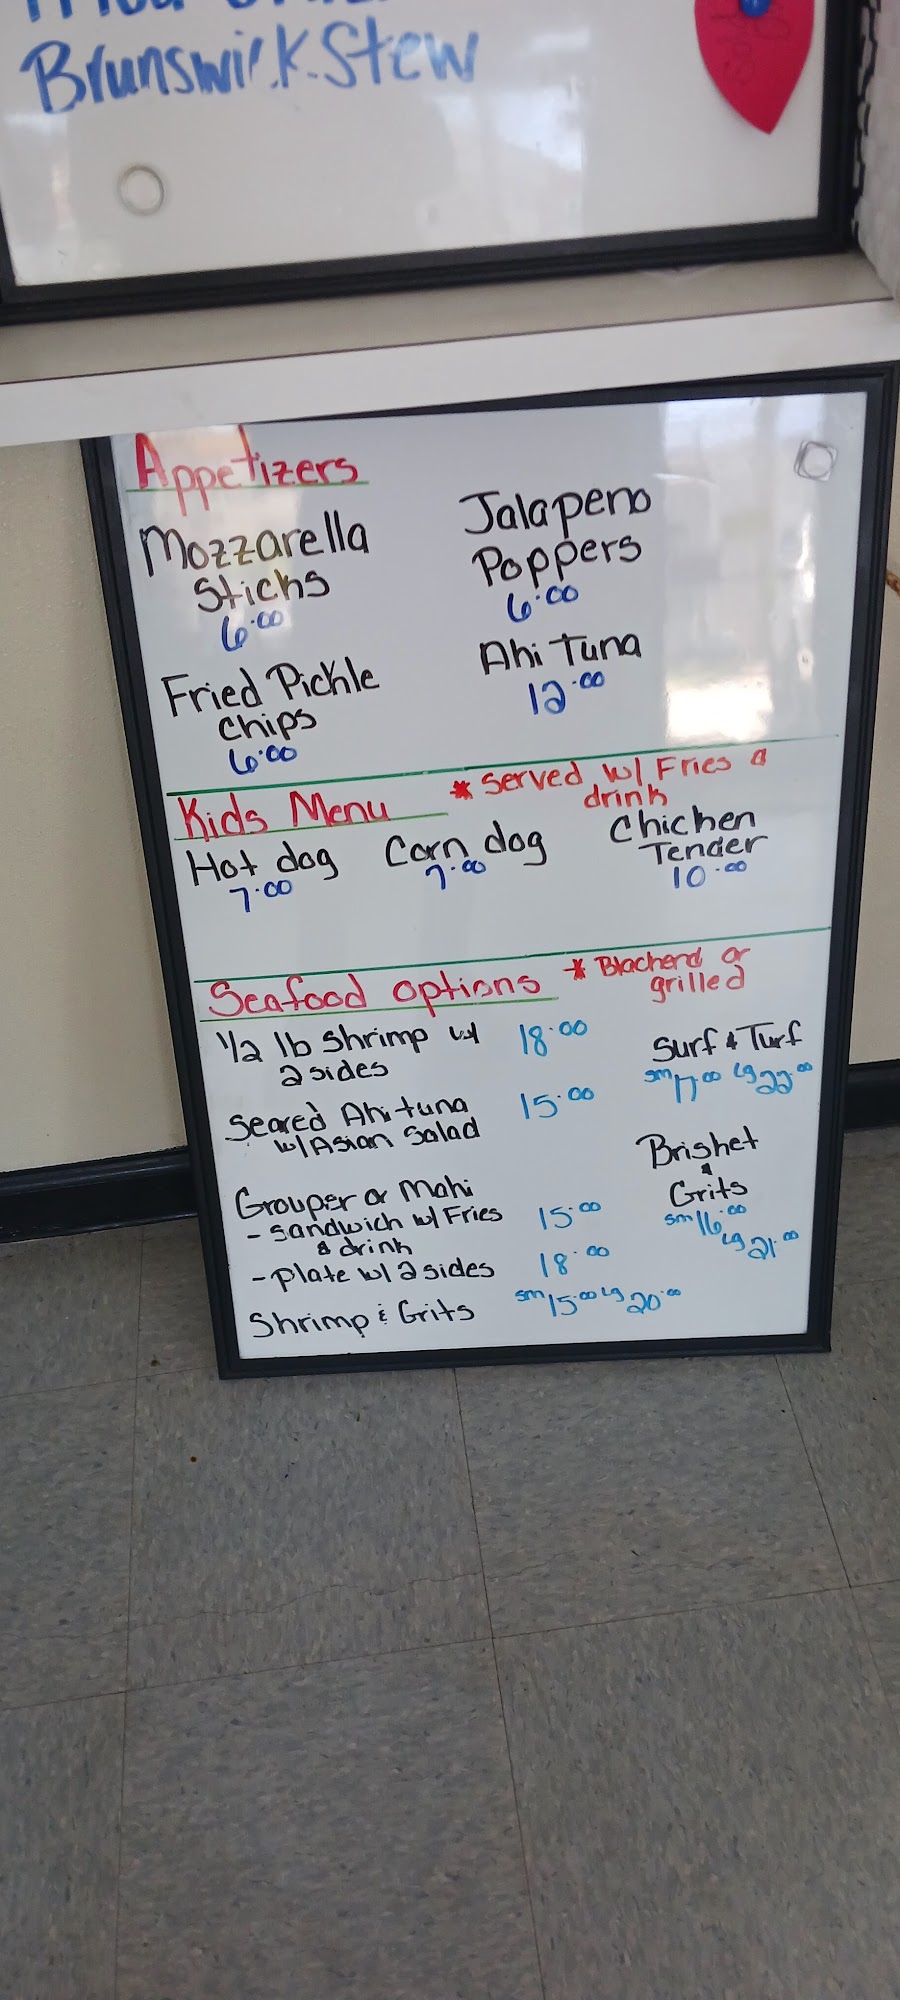 Brunswick Stew
Appetizers
Mozzarella
Sticks
6.00
Jalapeno
Poppers
6.00
Fried Pickle
Chips
6.00
Ahi Tuna
12.00
Kids Menu
* Served w/ Fries &
drink
Hot dog
7.00
Corn dog
7.00
Chicken
Tender
10.00
Seafood options
* Blackend or
grilled
1/2 lb Shrimp w/ 18.00
2 sides
Seared Ahi tuna 15.00
w/ Asian Salad
Grouper or Mahi
- Sandwich w/ Fries 15.00
& drink
- Plate w/ 2 sides 18.00
Shrimp & Grits sm 15.00 Lg 20.00
Surf & Turf
sm 17.00 Lg 22.00
Brisket
&
Grits
sm 16.00
Lg 21.00